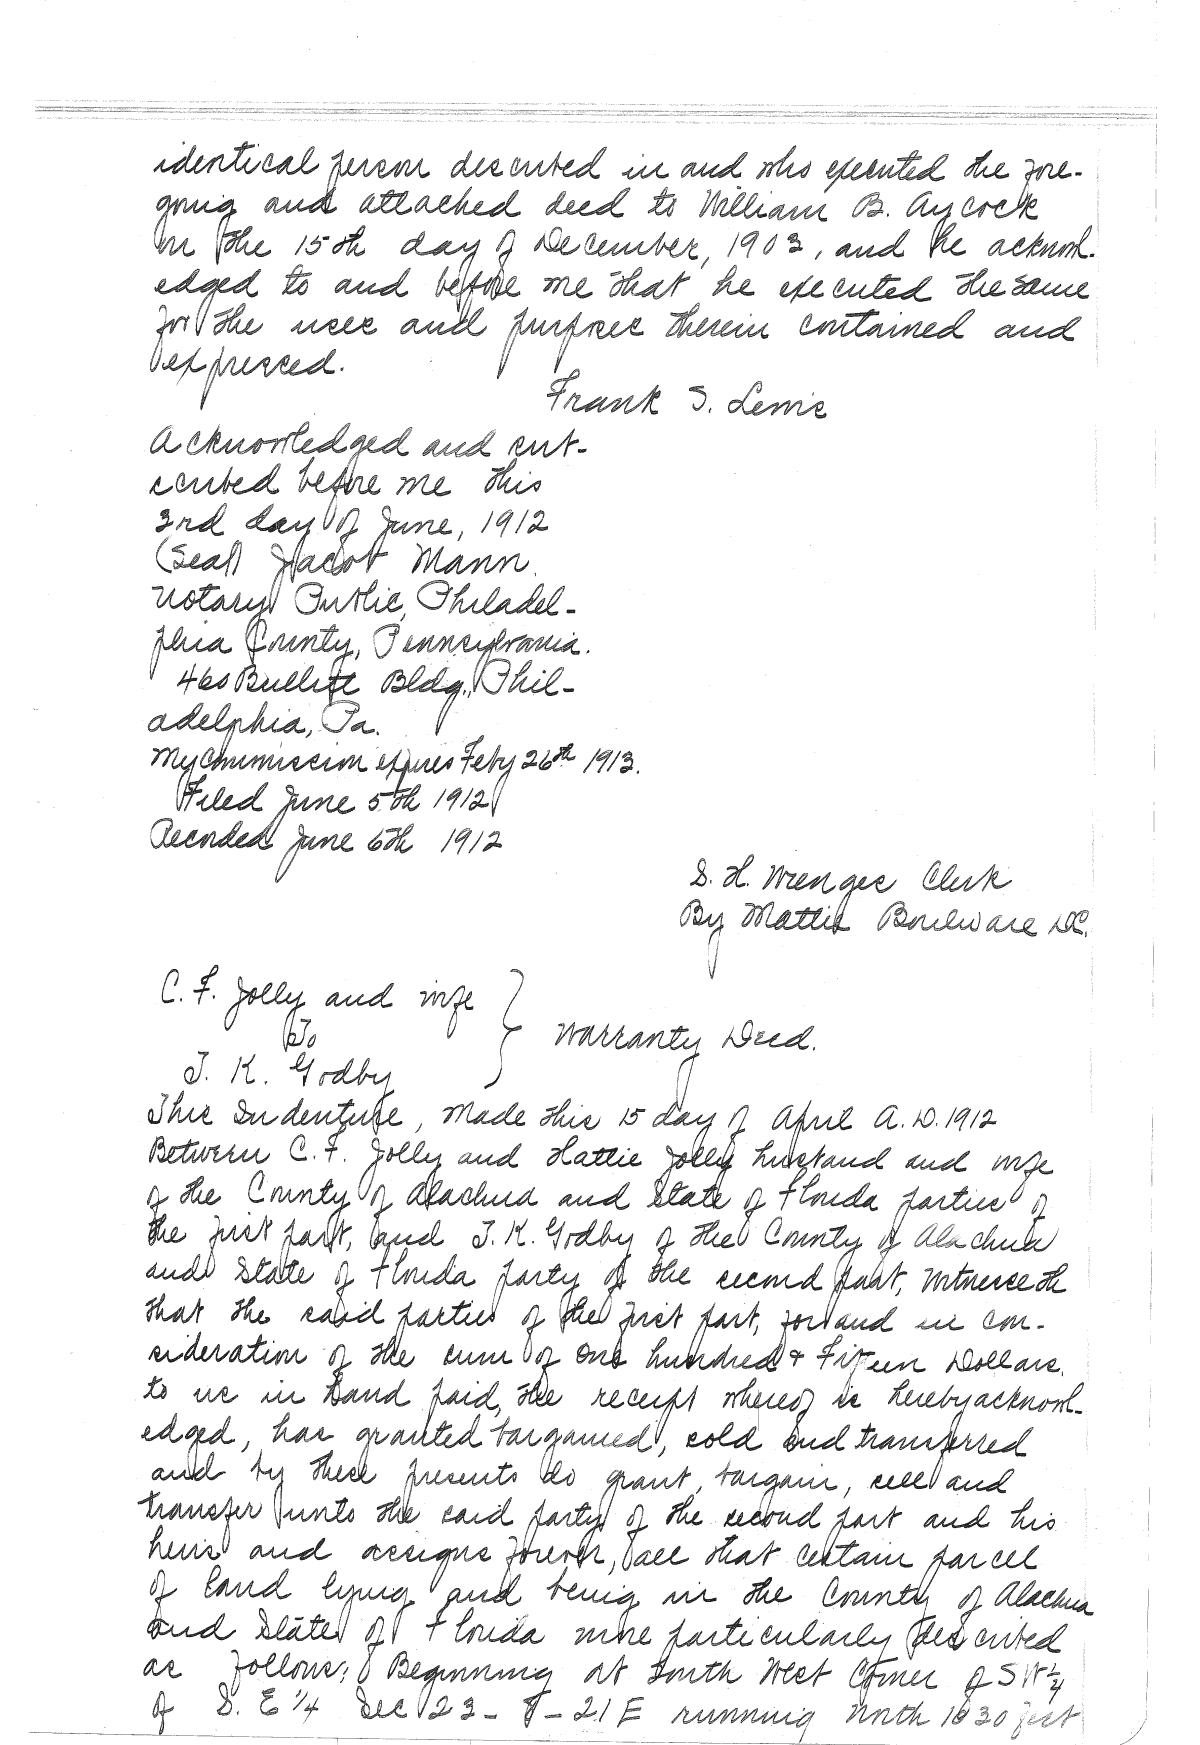 identical person described in and who executed the fore-
going and attached deed to William B. Aycock
on the 15th day of December, 1903, and he acknowl-
edged to and before me that he executed the same
for the uses and purposes therein contained and
expressed.
Frank S. Lewis
Acknowledged and sub-
scribed before me this
3rd day of June, 1912
(Seal) Jacob Mann.
Notary Public, Philadel-
phia County, Pennsylvania.
460 Bullitt Bldg., Phil-
adelphia, Pa.
My Commission expires Feby 26th 1913.
Filed June 5th 1912
Recorded June 6th 1912
S. H. Wienges Clerk
By Mattie Boulware D.C.
C. F. Jolly and wife
To
Warranty Deed.
J. K. Godby
This Indenture, Made this 15 day of April A.D. 1912
Between C. F. Jolly and Hattie Jolly husband and wife
of the County of Alachua and State of Florida parties of
the first part, and J. K. Godby of the County of Alachua
and State of Florida party of the second part, Witnesseth
that the said parties of the first part, for and in con-
sideration of the sum of One hundred & Fifteen Dollars.
to us in hand paid, the receipt whereof is hereby acknowl-
edged, has granted bargained, sold and transferred
and by these presents do grant, bargain, sell and
transfer unto the said party of the second part and his
heirs and assigns forever, all that certain parcel
of land lying and being in the County of Alachua
and State of Florida more particularly described
as follows: Beginning at South West Corner of SW 1/4
of S. E 1/4 Sec 23 - 8 - 21 E running North 1030 feet